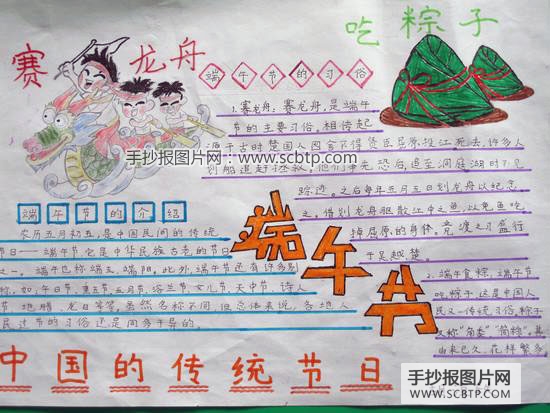 赛龙舟
吃粽子
端午节的习俗
1.赛龙舟:赛龙舟,是端午
节的主要习俗。相传起
源于古时楚国人因舍不得贤臣屈原投江死去,许多人
划船追赶拯救。他们争先恐后,追至洞庭湖时不见
踪迹。之后每年五月五日划龙舟以纪念
之。借划龙舟驱散江中之鱼,以免鱼吃
掉屈原的身体。竞渡之习,盛行
于吴越楚。
手抄报图片网:www.scbtp.com
端午节的介绍
农历五月初五,是中国民间的传统
节日——端午节,它是中华民族古老的节日
之一。端午也称端五,端阳。此外,端午节还有许多别
称,如:午日节、重五节,浴兰节、女儿节,天中节、诗人
节、地腊、龙日等等。虽然名称不同,但总体来说,各地人
民过节的习俗还是同多于异的。
端午节
2、端午食粽。端午节
吃粽子,这是中国人
民又一传统习俗。粽子
又称"角黍""筒粽"。其
由来已久,花样繁多
中国的传统节日
手抄报图片网
WWW.SCBTP.COM